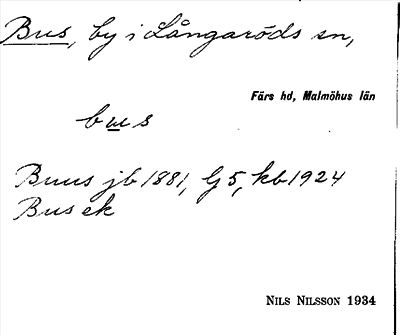 Bus, by i Långaröds sn,
Färs hd, Malmöhus län
bus
Buus jb 1881, G 5, kb 1924
Bus ek
NILS NILSSON 1934